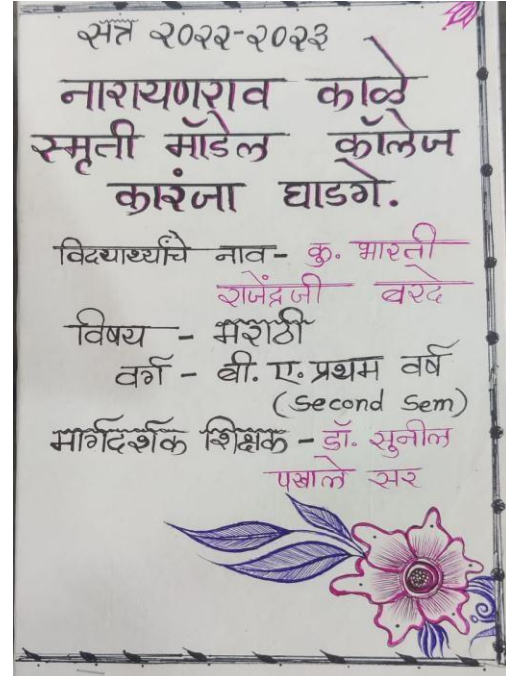 सत्र २०२२-२०२३
नारायणराव काळे
स्मृती मॉडेल कॉलेज
कारंजा घाडगे.
विद्यार्थ्यांचे नाव - कु. भारती
राजेंद्रजी बरदे
विषय - मराठी
वर्ग - बी. ए. प्रथम वर्ष
(Second Sem)
मार्गदर्शक शिक्षक - डॉ. सुनील
पखाले सर